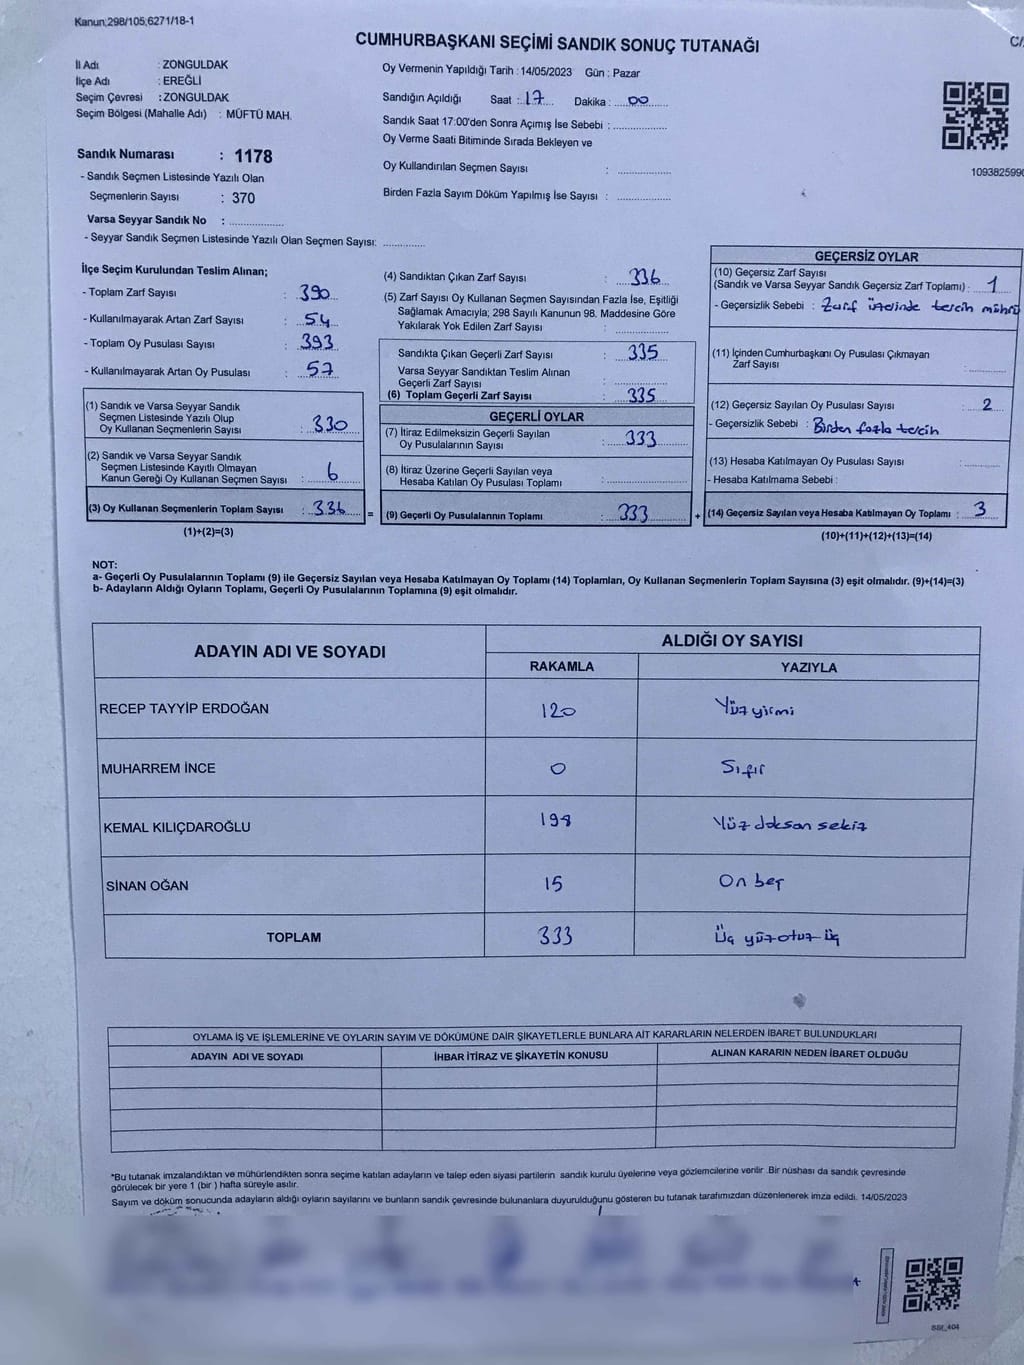 Kanun;298/105,6271/18-1
CUMHURBAŞKANI SEÇİMİ SANDIK SONUÇ TUTANAĞI
İl Adı : ZONGULDAK
İlçe Adı : EREĞLİ
Seçim Çevresi : ZONGULDAK
Seçim Bölgesi (Mahalle Adı) : MÜFTÜ MAH.
Sandık Numarası : 1178
- Sandık Seçmen Listesinde Yazılı Olan
Seçmenlerin Sayısı : 370
Varsa Seyyar Sandık No : ................
- Seyyar Sandık Seçmen Listesinde Yazılı Olan Seçmen Sayısı: ............
Oy Vermenin Yapıldığı Tarih : 14/05/2023 Gün : Pazar
Sandığın Açıldığı Saat : 17 Dakika : 00
Sandık Saat 17:00'den Sonra Açımış İse Sebebi : ................
Oy Verme Saati Bitiminde Sırada Bekleyen ve
Oy Kullandırılan Seçmen Sayısı : ................
Birden Fazla Sayım Döküm Yapılmış İse Sayısı : ................
C/
1093825990
İlçe Seçim Kurulundan Teslim Alınan;
- Toplam Zarf Sayısı : 390
- Kullanılmayarak Artan Zarf Sayısı : 54
- Toplam Oy Pusulası Sayısı : 393
- Kullanılmayarak Artan Oy Pusulası : 57
(1) Sandık ve Varsa Seyyar Sandık
Seçmen Listesinde Yazılı Olup
Oy Kullanan Seçmenlerin Sayısı : 330
(2) Sandık ve Varsa Seyyar Sandık
Seçmen Listesinde Kayıtlı Olmayan
Kanun Gereği Oy Kullanan Seçmen Sayısı : 6
(3) Oy Kullanan Seçmenlerin Toplam Sayısı : 336 =
(1)+(2)=(3)
(4) Sandıktan Çıkan Zarf Sayısı : 336
(5) Zarf Sayısı Oy Kullanan Seçmen Sayısından Fazla İse, Eşitliği
Sağlamak Amacıyla; 298 Sayılı Kanunun 98. Maddesine Göre
Yakılarak Yok Edilen Zarf Sayısı : ................
Sandıkta Çıkan Geçerli Zarf Sayısı : 335
Varsa Seyyar Sandıktan Teslim Alınan
Geçerli Zarf Sayısı : ................
(6) Toplam Geçerli Zarf Sayısı : 335
GEÇERLİ OYLAR
(7) İtiraz Edilmeksizin Geçerli Sayılan
Oy Pusulalarının Sayısı : 333
(8) İtiraz Üzerine Geçerli Sayılan veya
Hesaba Katılan Oy Pusulası Toplamı : ................
(9) Geçerli Oy Pusulalarının Toplamı : 333 +
GEÇERSİZ OYLAR
(10) Geçersiz Zarf Sayısı
(Sandık ve Varsa Seyyar Sandık Geçersiz Zarf Toplamı) : 1
- Geçersizlik Sebebi : Zarf üzerinde tercih mührü
(11) İçinden Cumhurbaşkanı Oy Pusulası Çıkmayan
Zarf Sayısı : ............
(12) Geçersiz Sayılan Oy Pusulası Sayısı : 2
- Geçersizlik Sebebi : Birden fazla tercih
(13) Hesaba Katılmayan Oy Pusulası Sayısı : ............
- Hesaba Katılmama Sebebi :
(14) Geçersiz Sayılan veya Hesaba Katılmayan Oy Toplamı : 3
(10)+(11)+(12)+(13)=(14)
NOT:
a- Geçerli Oy Pusulalarının Toplamı (9) ile Geçersiz Sayılan veya Hesaba Katılmayan Oy Toplamı (14) Toplamları, Oy Kullanan Seçmenlerin Toplam Sayısına (3) eşit olmalıdır. (9)+(14)=(3)
b- Adayların Aldığı Oyların Toplamı, Geçerli Oy Pusulalarının Toplamına (9) eşit olmalıdır.
ADAYIN ADI VE SOYADI ALDIĞI OY SAYISI
RAKAMLA YAZIYLA
RECEP TAYYİP ERDOĞAN 120 Yüz yirmi
MUHARREM İNCE 0 Sıfır
KEMAL KILIÇDAROĞLU 198 Yüz doksan sekiz
SİNAN OĞAN 15 On beş
TOPLAM 333 Üç yüz otuz üç
OYLAMA İŞ VE İŞLEMLERİNE VE OYLARIN SAYIM VE DÖKÜMÜNE DAİR ŞİKAYETLERLE BUNLARA AİT KARARLARIN NELERDEN İBARET BULUNDUKLARI
ADAYIN ADI VE SOYADI İHBAR İTİRAZ VE ŞİKAYETİN KONUSU ALINAN KARARIN NEDEN İBARET OLDUĞU
*Bu tutanak imzalandıktan ve mühürlendikten sonra seçime katılan adayların ve talep eden siyasi partilerin sandık kurulu üyelerine veya gözlemcilerine verilir .Bir nüshası da sandık çevresinde
görülecek bir yere 1 (bir ) hafta süreyle asılır.
Sayım ve döküm sonucunda adayların aldığı oyların sayılarını ve bunların sandık çevresinde bulunanlara duyurulduğunu gösteren bu tutanak tarafımızdan düzenlenerek imza edildi. 14/05/2023
SSt_404